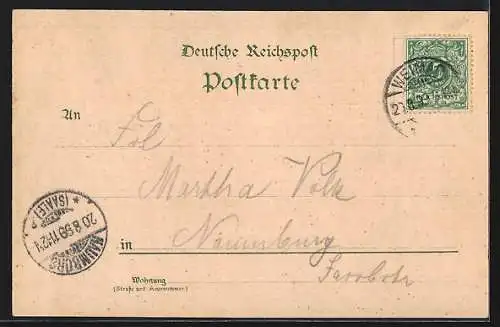 Deutsche Reichspost
Postkarte
WEIMAR
An
Frl
Martha Volk
in Naumburg
Jacobstr
NAUMBURG
(SAALE)
20 8 99 11-12 V
Wohnung
(Straße und Hausnummer)